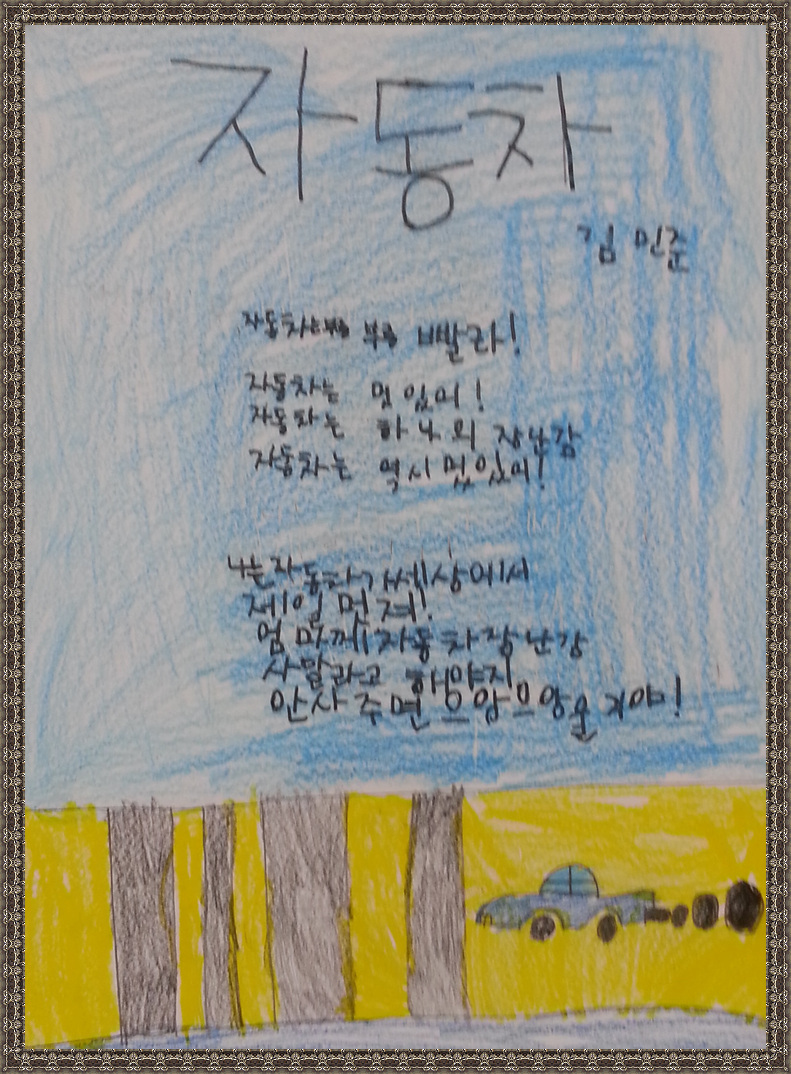 자동차
김민준
자동차는 부릉 부릉 빨라!
자동차는 멋있어!
자동차는 하나의 장난감
자동차는 역시 멌있어!
나는 자동차가 세상에서
제일 멋져!
엄마께 자동차 장난감
사달라고 해야지
안사주면 으앙으앙 울 거야!